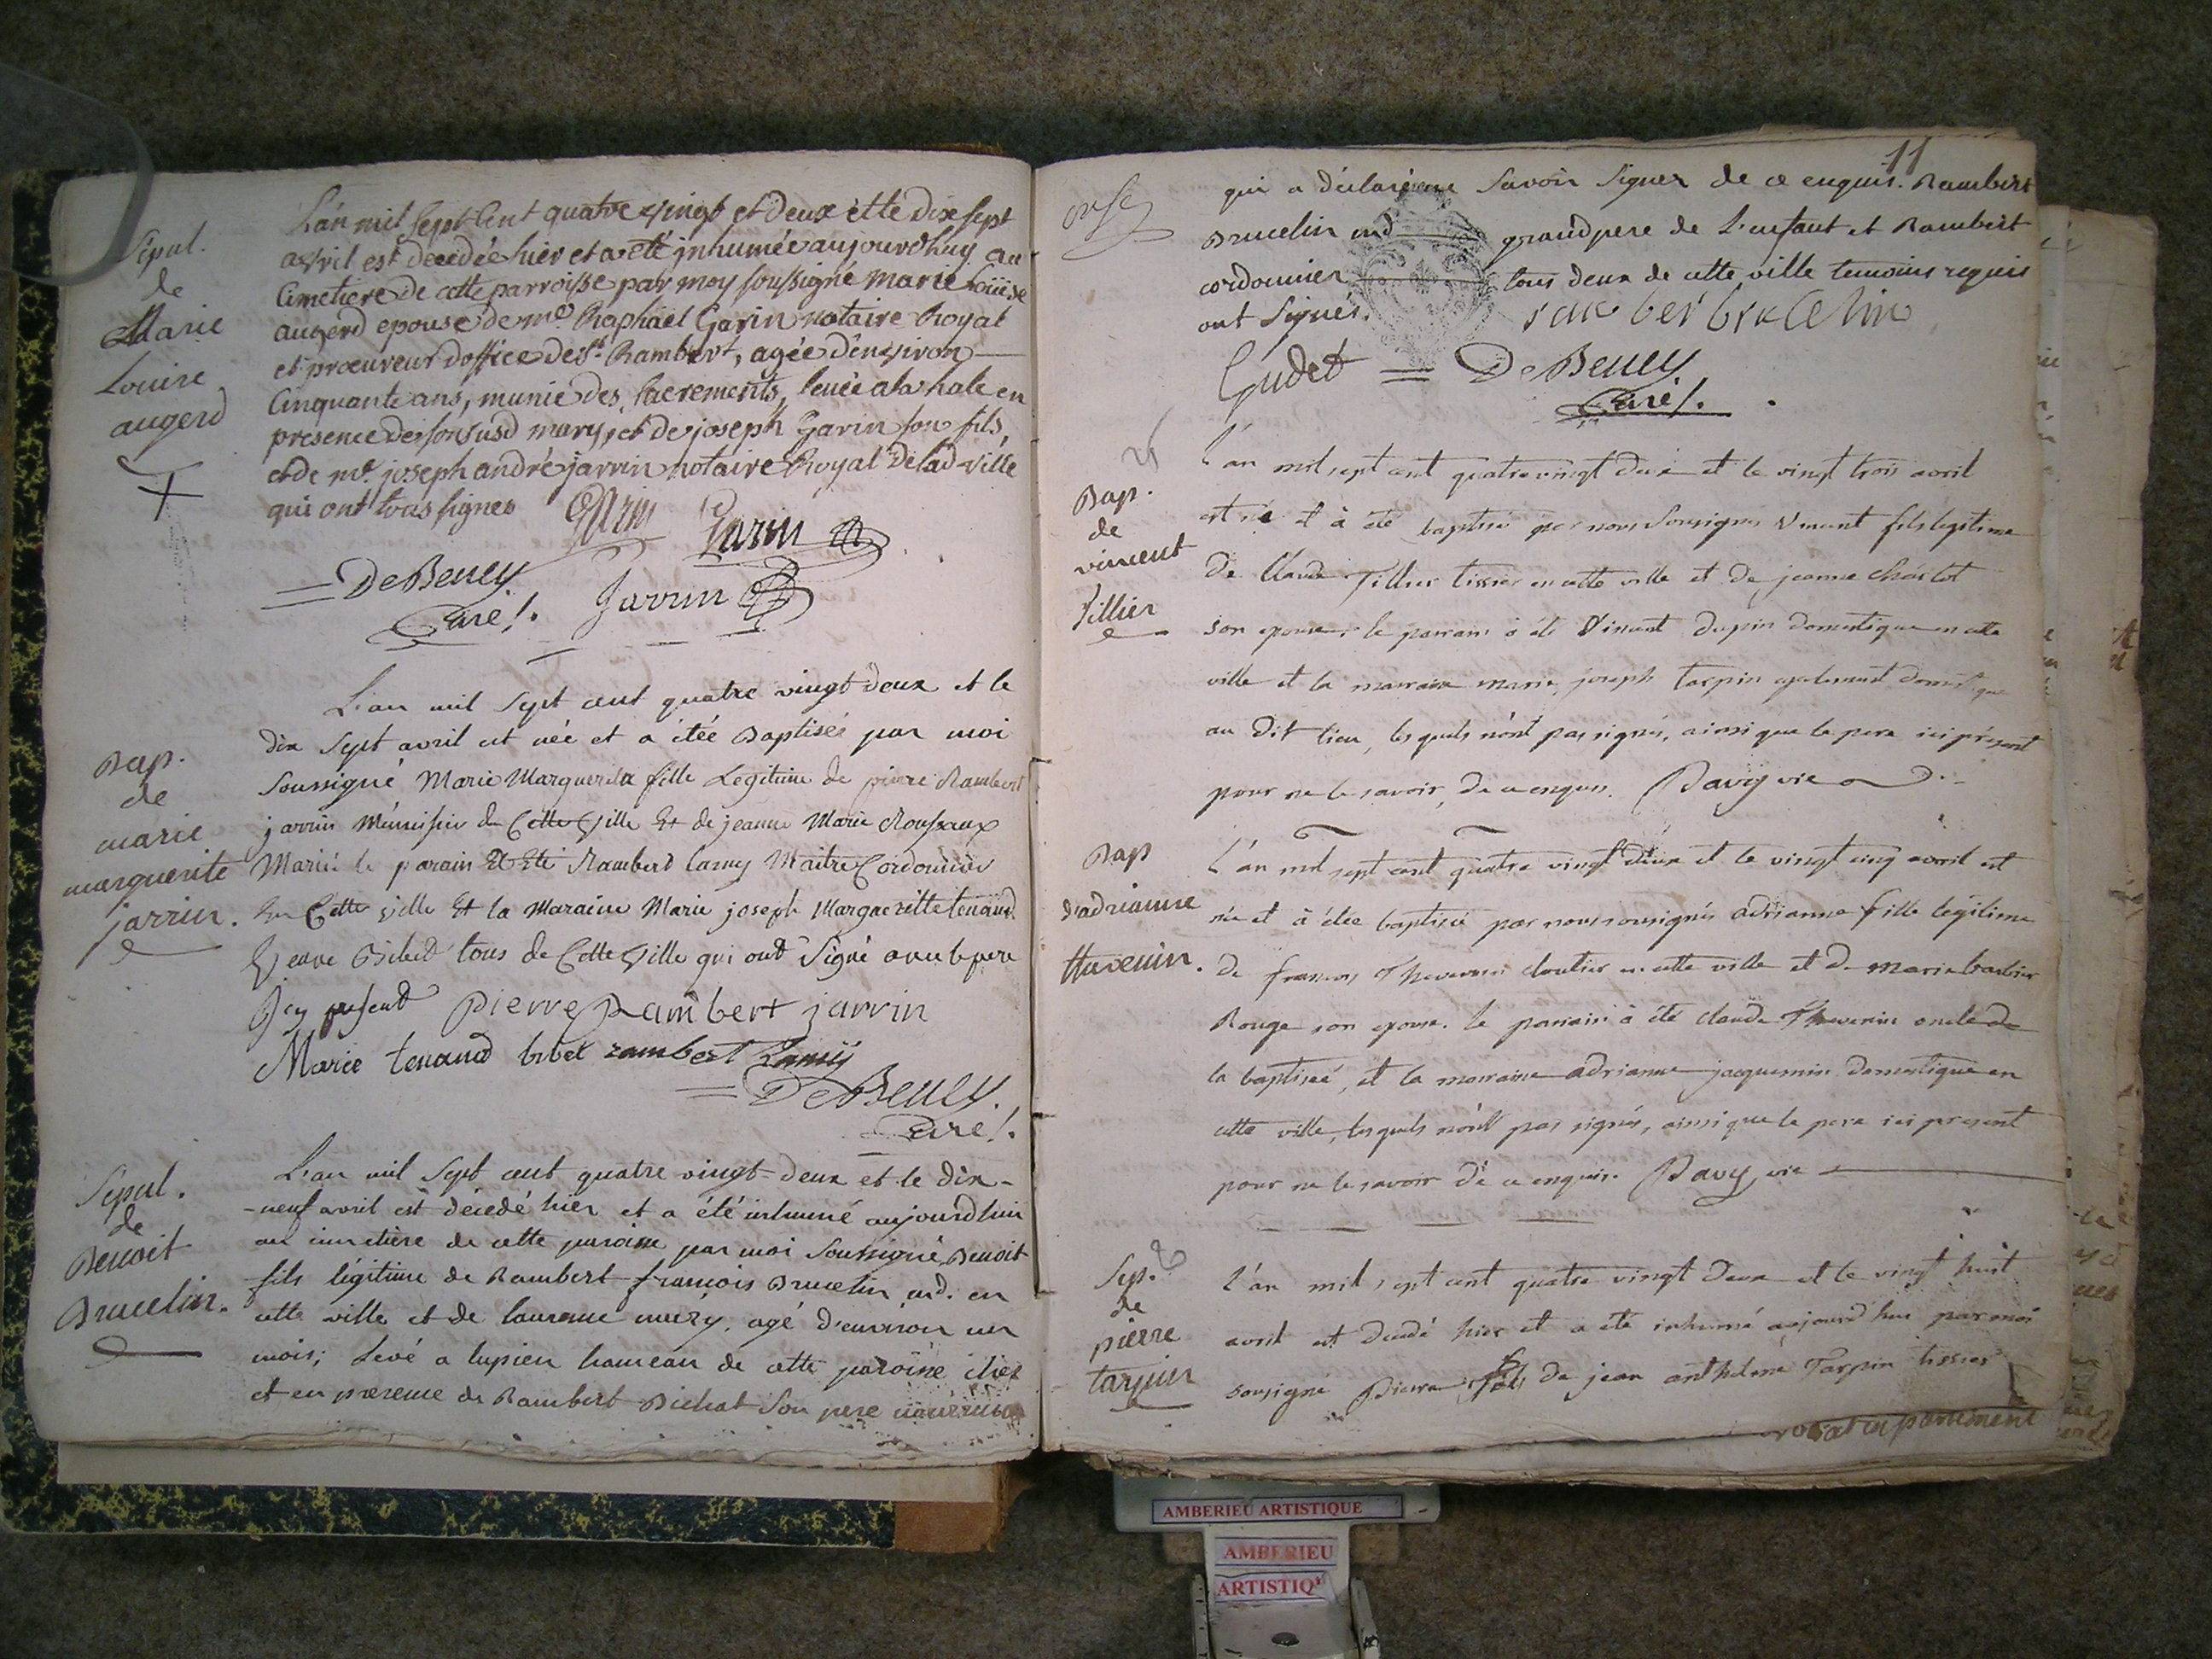 Sépul.
de
Marie
Louise
augerd
L'an mil sept Cent quatre vingt et deux et le dix sept
avril est decedée hier et a été jnhumée aujourdhuy au
Cimetiere de cette parroisse par moy soussigné marie Loüise
augerd epouse de me. Raphaël Garin notaire Royal
et procureur doffice de st. Rambert, agée d'environ
Cinquante ans, munie des sacrements, levée a la hale en
presence de son susd mary, et de joseph Garin son fils,
et de me. joseph andré jarrin notaire Royal de lad ville
qui ont tous signes Garin Garin
= DeBeney Jarrin
Curé !.
Bap.
de
marie
marguerite
jarrin.
L'an mil sept cent quatre vingt deux et le
dix sept avril est née et a étée Baptisée par moi
soussigné Marie Marguerite fille Legitime de pierre Rambert
jarrin Ménuisier de Cette Ville Et de jeanne Marie Rousseaux
Mariée le parain Et Eté Rambert lamy Maitre Cordonnier
En Cette ville Et la Maraine Marie joseph Margueritte tenaud
Veuve Bibet tous de Cette Ville qui ont Signé avec le pere
Jcy present Pierre Rambert jarrin
Marie tenaud bibet rambert Lamÿ
= DeBeney.
Curé !.
Sépul.
de
Benoit
Brucelin.
L'an mil sept cent quatre vingt-deux et le dix-
-neuf avril est décédé hier et a été inhumé aujourdhui
au cimetière de cette paroisse par moi soussigné, Benoit
fils légitime de Rambert françois Brucelin md. en
cette ville et de laurence mury, agé d'environ un
mois; Levé a lupieu hameau de cette paroisse chez
et en presence de Rambert Bichat son pere nourricier
11
onse
qui a déclaré ne savoir signer de ce enquis. Rambert
Brucelin md grandpere de L'enfant et Rambert
cordonnier tous deux de cette ville temoins requis
ont signés. rambert brucelin
Gudet = DeBeney
Curé !.
Bap.
de
vincent
Tillier
L'an mil sept cent quatre vingt deux et le vingt trois avril
est né et à été baptisé par nous sousignés Vincent fils legitime
de Claude Tillier tissier en cette ville et de jeanne Charlot
son epouse, le parrain à été Vincent dupin domestique en cette
ville et la marraine marie joseph tarpin egalement domestique
au dit lieu, lesquels n'ont pas signés, ainsi que le pere ici présent
pour ne le savoir, de ce enquis. Bavÿ vic
Bap
d'adrianne
thevenin.
L'an mil sept cent quatre vingt deux et le vingt cinq avril est
née et à étée baptisée par nous sousignés adrianne fille légitime
de francois Thevenin cloutier en cette ville et de marie barbier
Rouge son epouse. le parrain à été claude Thevenin oncle de
la baptiseé, et la marraine adrianne jacquemin domestique en
cette ville, lesquels n'ont pas signés, ainsi que le pere ici present
pour ne le savoir de ce enquis. Bavÿ vic
Sep.
de
pierre
tarpin
L'an mil sept cent quatre vingt deux et le vingt huit
avril est décédé hier et a été inhumé aujourd'hui par moi
sousigné Pierre fils de jean anthelme Tarpin tissier
AMBERIEU ARTISTIQUE
AMBERIEU
ARTISTIQ